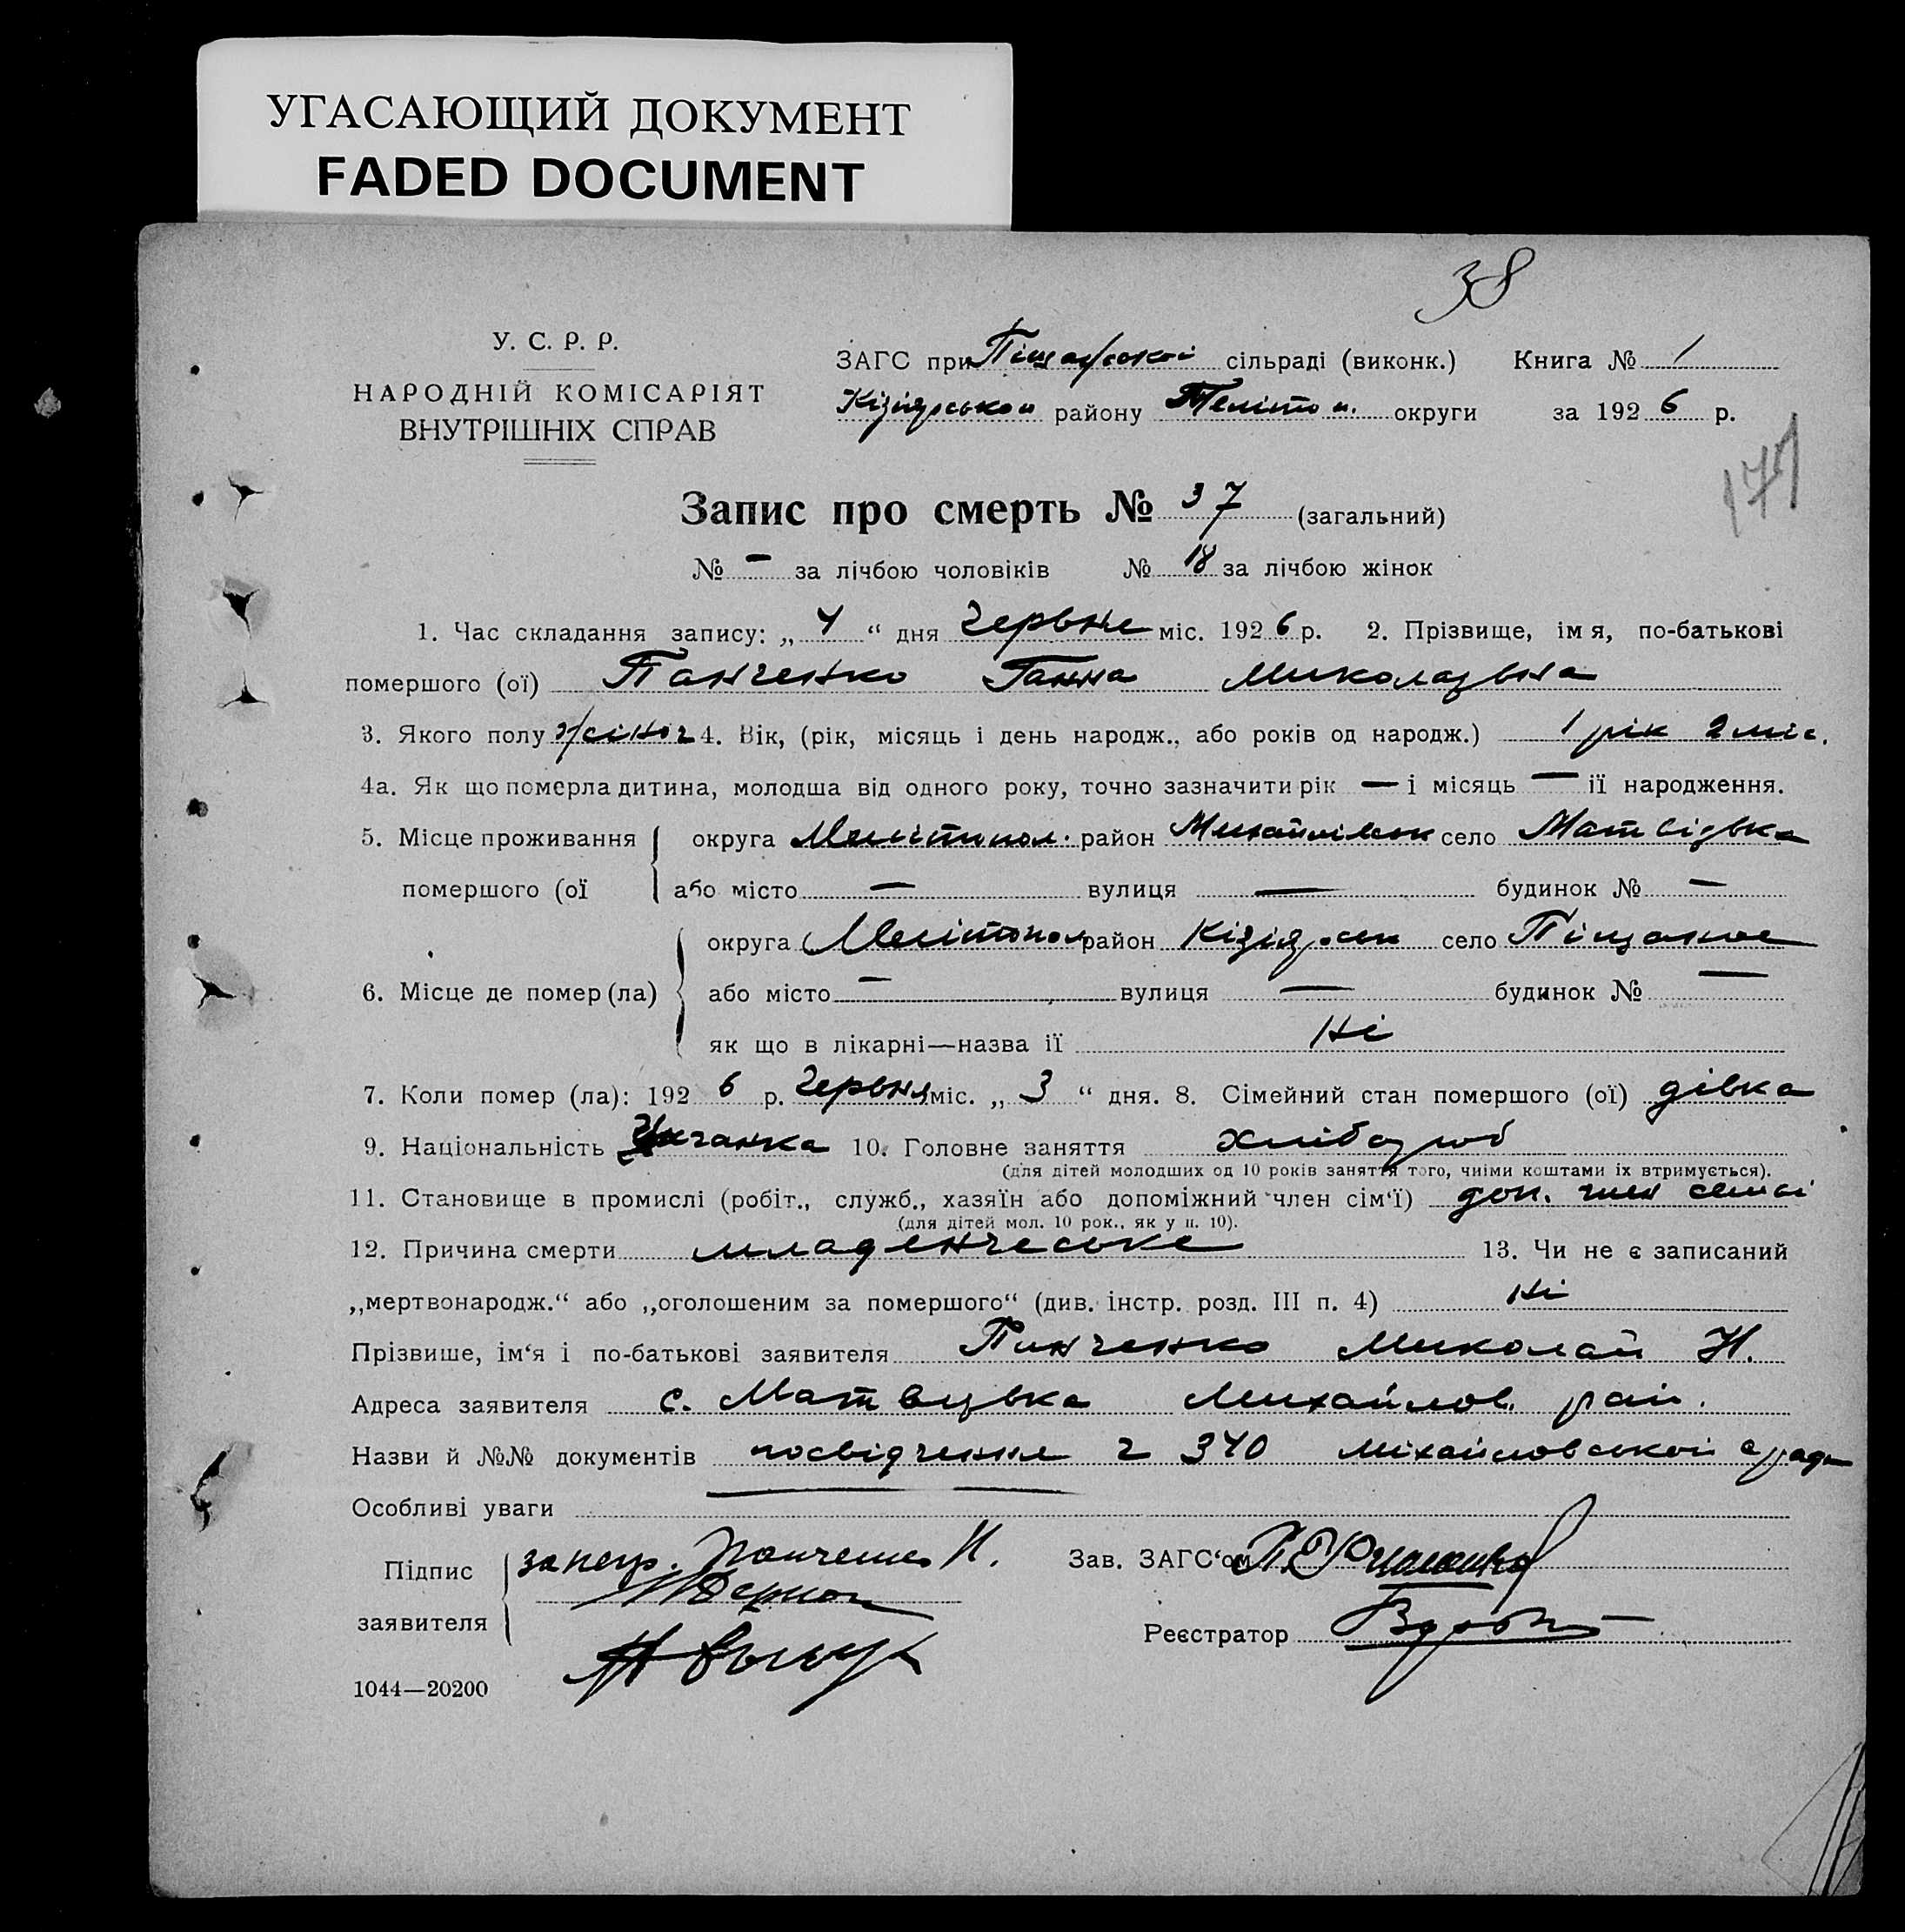 УГАСАЮЩИЙ ДОКУМЕНТ
FADED DOCUMENT
38
У. С. Р. Р.
НАРОДНІЙ КОМІСАРІЯТ
ВНУТРІШНІХ СПРАВ
ЗАГС при сільраді (виконк.) Книга № 1
району округи за 1926 р.
171
Запис про смерть № 37 (загальний)
№ — за лічбою чоловіків № 18 за лічбою жінок
1. Час складання запису: „ 4 “ дня червне міс. 1926 р. 2. Прізвище, імя, по-батькові
помершого (ої) Панченко Ганна Миколаївна
3. Якого полу жіноч 4. Вік, (рік, місяць і день народж., або років од народж.) 1 рік 2 міс.
4а. Як що померла дитина, молодша від одного року, точно зазначити рік — і місяць — її народження.
5. Місце проживання округа Мелітопол. район село
помершого (ої або місто — вулиця — будинок № —
округа Мелітопол район Кізіярськ село Піщаное
6. Місце де помер(ла) або місто — вулиця — будинок № —
як що в лікарні—назва її Ні
7. Коли помер (ла): 1926 р. Червня міс. „ 3 “ дня. 8. Сімейний стан помершого (ої) дівка
9. Національність 10. Головне заняття хлібороб
(для дітей молодших од 10 років заняття того, чиїми коштами їх втримується).
11. Становище в промислі (робіт., служб., хазяїн або допоміжний член сім‘ї) доп. член семьі
(для дітей мол. 10 рок., як у п. 10).
12. Причина смерти младенческе 13. Чи не є записаний
„мертвонародж.“ або „оголошеним за помершого“ (див. інстр. розд. III п. 4) Ні
Прізвише, ім‘я і по-батькові заявителя Панченко Миколай Н.
Адреса заявителя с. Матвіївка Михайлов. рай.
Назви й №№ документів посвідчення 340 Міхайловської с/ради
Особливі уваги
Підпис Панченко Н. Зав. ЗАГС‘ом
заявителя
Реєстратор
1044—20200